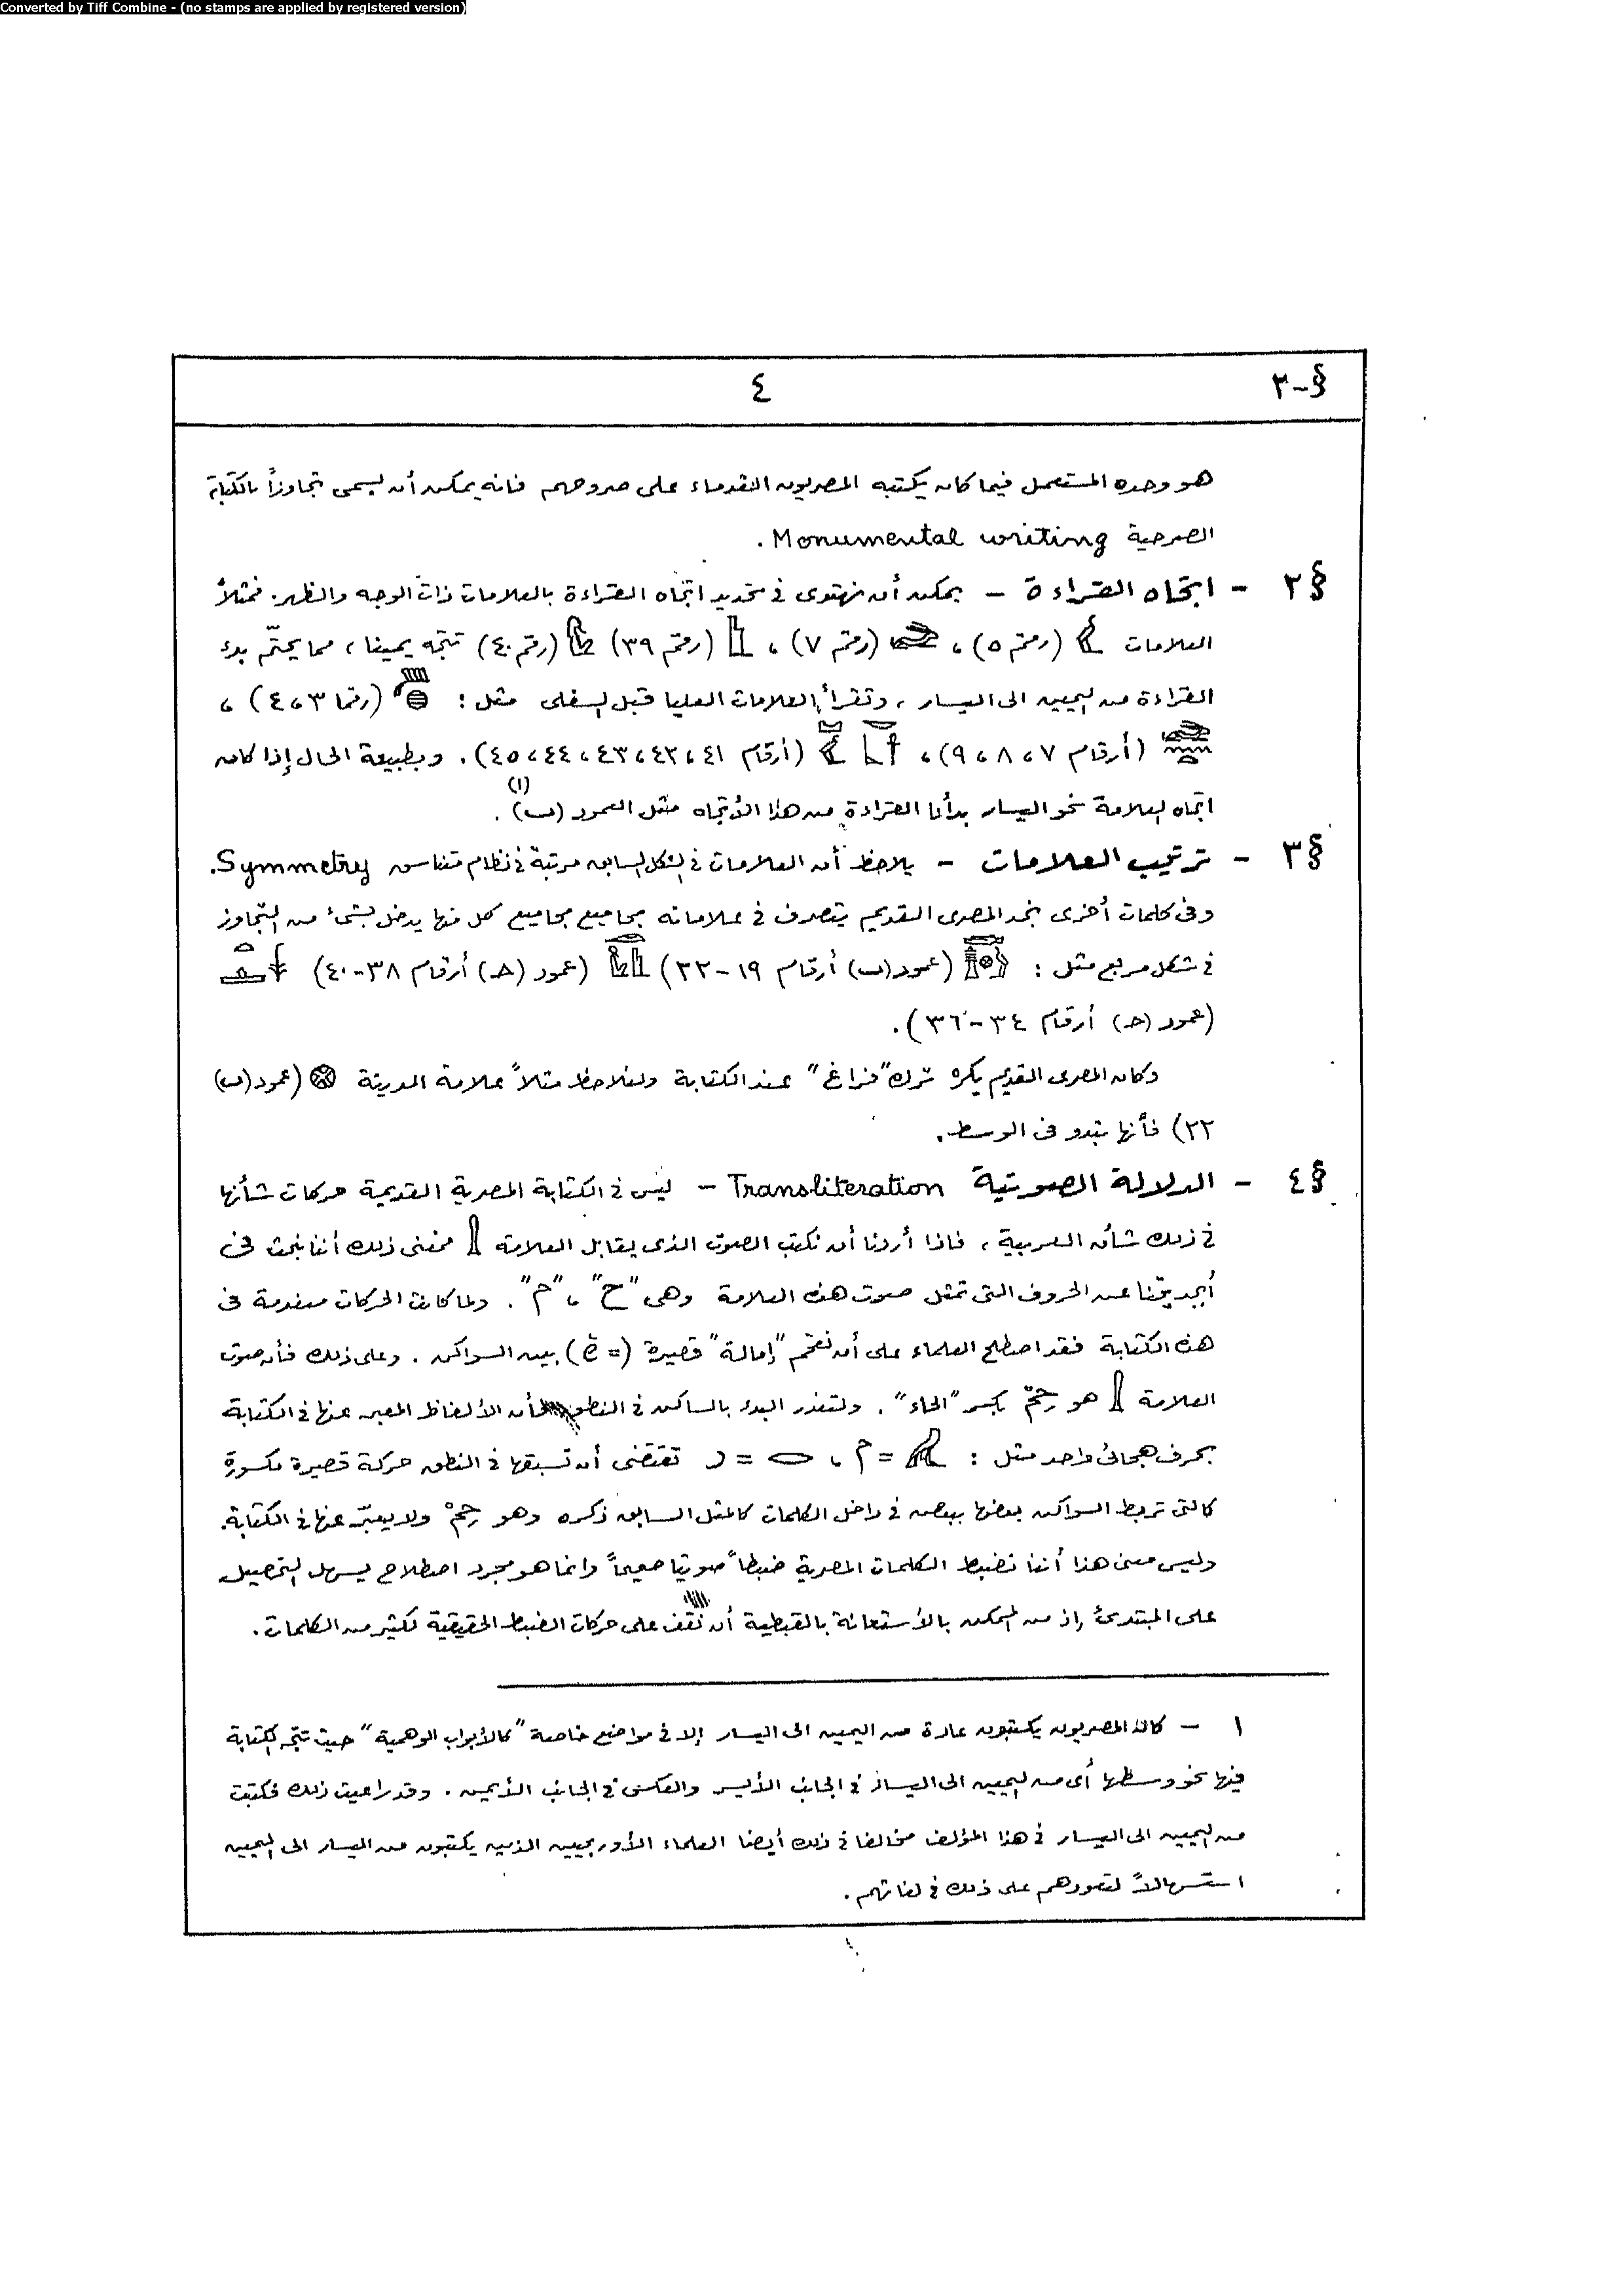 Converted by Tiff Combine - (no stamps are applied by registered version)
§-٢
٤
هو وحده المستعمل فيما كان يكتبه المصريون القدماء على صروحهم فانه يمكن أن يسمى تجاوزاً بالكتابة
الصرحية Monumental writing .
§٢ - اتجاه القراءة - يمكن أن نهتدى فى تحديد اتجاه القراءة بالعلامات ذات الوجه والظهر. فمثلاً
العلامات (رقم ٥) ، (رقم ٧) ، (رقم ٣٩) (رقم ٤٠) تتجه يمينا ، مما يحتّم بدء
القراءة من اليمين الى اليسار ، وتقرأ العلامات العليا قبل السفلى مثل : (رقما ٣،٤) ،
(أرقام ٧،٨،٩) ، (أرقام ٤١،٤٢،٤٣،٤٤،٤٥) . وبطبيعة الحال إذا كان
اتجاه العلامة نحو اليسار بدأنا القراءة من هذا الأتجاه مثل العمود (ب) (١) .
§٣ - ترتيب العلامات - يلاحظ أن العلامات فى الشكل السابق مرتبة فى نظام متناسق Symmetry.
وفى كلمات أخرى نجد المصرى القديم يتصرف فى علاماته مجاميع مجاميع كل منها يدخل بشىء من التجاوز
فى شكل مربع مثل : (عمود (ب) أرقام ١٩-٢٢) (عمود (حـ) أرقام ٣٨-٤٠)
(عمود (حـ) أرقام ٣٤-٣٦) .
وكان المصرى القديم يكره ترك "فراغ" عند الكتابة ولنلاحظ مثلاً علامة المدينة (عمود (ب)
٢٢) فأنها تبدو فى الوسط .
§٤ - الدلالة الصوتية Transliteration - ليس فى الكتابة المصرية القديمة حركات شأنها
فى ذلك شأن العربية ، فاذا أردنا أن نكتب الصوت الذى يقابل العلامة فمعنى ذلك أننا نبحث فى
أبجديتنا عن الحروف التى تمثل صوت هذه العلامة وهى "ح" ، "م" . ولما كانت الحركات منعدمة فى
هذه الكتابة فقد اصطلح العلماء على أن نقحم "إمالة" قصيرة (= ĕ) بين السواكن . وعلى ذلك فأن صوت
العلامة هو حِمْ بكسر "الحاء" . ولتعذر البدء بالساكن فى النطق فأن الألفاظ المعبر عنها فى الكتابة
بحرف هجائى واحد مثل : = م ، = ر تقتضى أن تسبقها فى النطق حركة قصيرة مكسورة
كالتى تربط السواكن بعضها ببعض فى داخل الكلمات كالمثل السابق ذكره وهو حِمْ ولا يعبّر عنها فى الكتابة.
وليس معنى هذا أننا نضبط الكلمات المصرية ضبطاً صوتيا صحيحاً وانما هو مجرد اصطلاح يسهل التحصيل
على المبتدئ إذ من الممكن بالأستعانة بالقبطية أن نقف على حركات الضبط الحقيقية لكثير من الكلمات .
١ - كان المصريون يكتبون عادة من اليمين الى اليسار إلا فى مواضع خاصة "كالأبواب الوهمية" حيث تتجه الكتابة
فيها نحو وسطها أى من اليمين الى اليسار فى الجانب الأيسر والعكس فى الجانب الأيمن . وقد راعيت ذلك فكتبت
من اليمين الى اليسار فى هذا المؤلف مخالفا فى ذلك أيضا العلماء الأوربيين الذين يكتبون من اليسار الى اليمين
استسهالاً لتعودهم على ذلك فى لغاتهم .